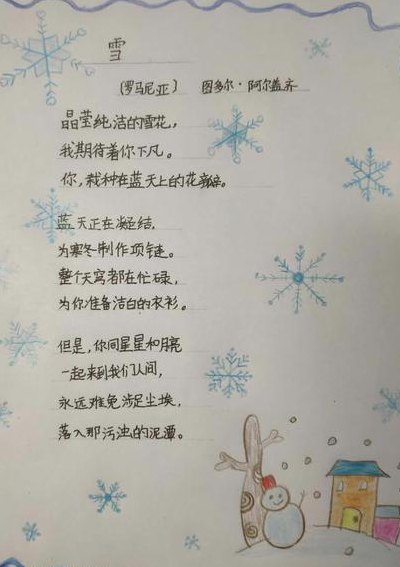 雪
(罗马尼亚) 图多尔·阿尔盖齐
晶莹纯洁的雪花，
我期待着你下凡。
你，栽种在蓝天上的花瓣。
蓝天正在凝结，
为寒冬制作项链。
整个天穹都在忙碌，
为你准备洁白的衣衫。
但是，你同星星和月亮
一起来到我们人间，
永远难免涉足尘埃，
落入那污浊的泥潭。